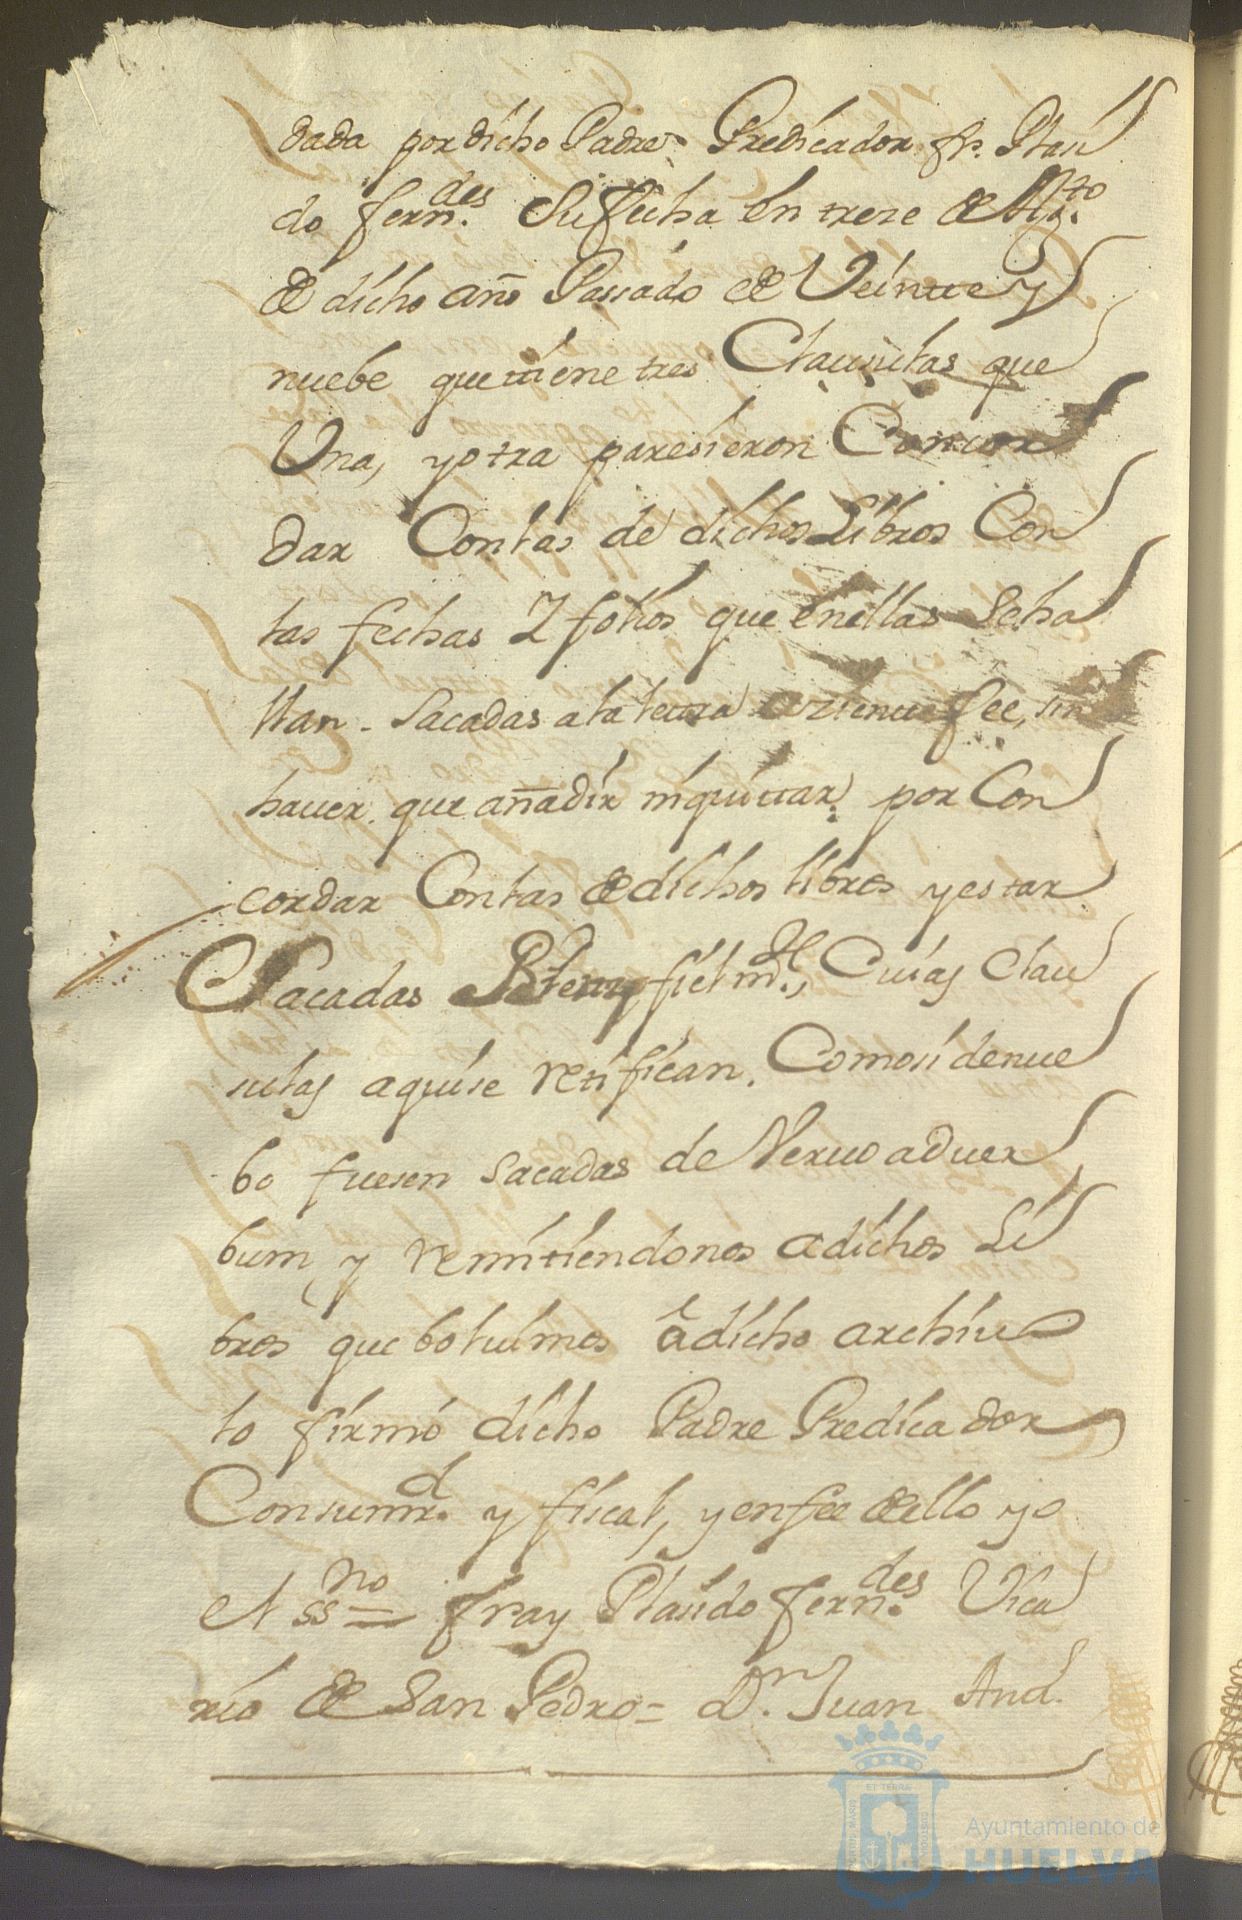 dada por dicho Padre Predicador fr. Plasi
do fern.des Su fecha en treze de Ag.to
de dicho año Passado de Veinte y
nuebe que tiene tres Clausulas que
Una, y otra paresieron Concor
dar Con las de dichos Libros Con
las fechas Y folios que en ellas Se ha
llan - Sacadas a la letra fee, sin
hauer que añadir ni quittar por Con
cordar Con las de dichos libros y estar
Sacadas fielm.te, Cuias Clau
sulas aqui se retifican, Como si de nue
bo fuesen Sacadas de Veruo aduer
bum, y remitiendonos a dichos Li
bros que boluimos â dicho archiuo
lo firmó dicho Padre Predicador
y fiscal, y en fee de ello yo
el ss.no = fray Plasido fern.des Vica
rio de San Pedro = D.n Juan And.
ET TERRE
Ayuntamiento de
HUELVA